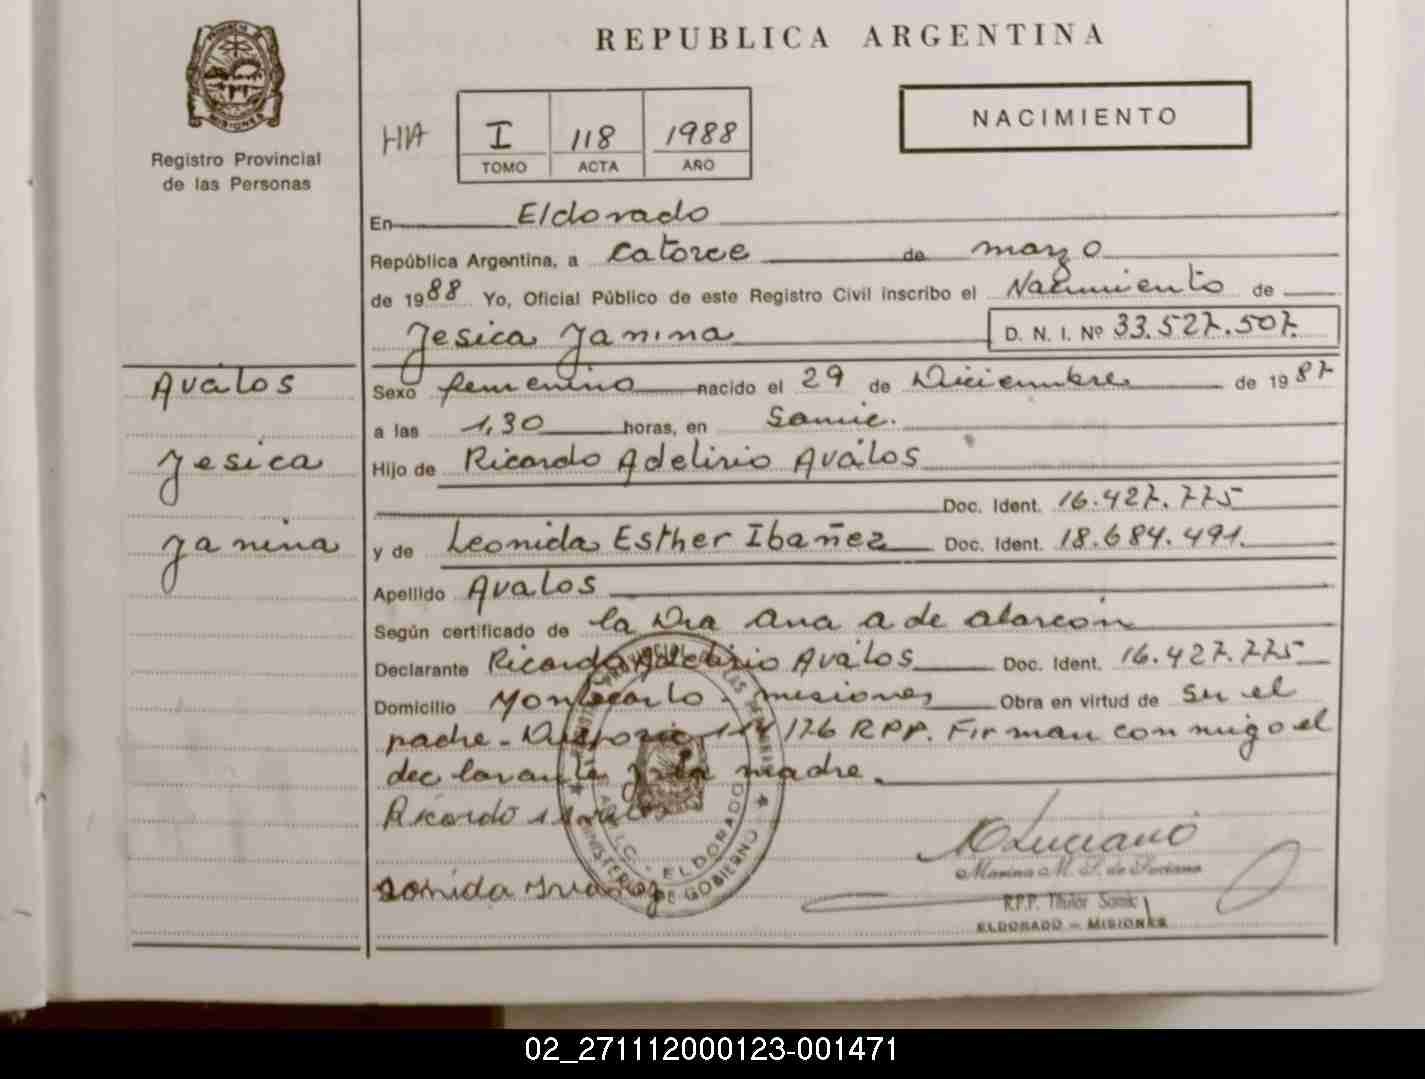 REPUBLICA ARGENTINA
PROVINCIA DE MISIONES
Registro Provincial
de las Personas
HIA
I 118 1988
TOMO ACTA AÑO
NACIMIENTO
En Eldorado
República Argentina, a catorce de marzo
de 1988 Yo, Oficial Público de este Registro Civil inscribo el Nacimiento de
Jesica Janina D. N. I. Nº 33.527.507.
Avalos
Jesica
Janina
Sexo femenino nacido el 29 de Diciembre de 1987
a las 1,30 horas, en Samic.
Hijo de Ricardo Adelirio Aválos
Doc. Ident. 16.427.775
y de Leonida Esther Ibañez Doc. Ident. 18.684.491.
Apellido Avalos
Según certificado de la Dra Ana A de Alarcón
Declarante Ricardo Adelirio Aválos Doc. Ident. 16.427.775
Domicilio Montecarlo - misiones Obra en virtud de su el
padre. 126 RPP. Firman conmigo el
declarante y la madre.
Ricardo
MINISTERIO DE GOBIERNO
ELDORADO
Luciano
Marina M. S. de Luciano
R.P.P. Titular Samic
ELDORADO - MISIONES
02_271112000123-001471